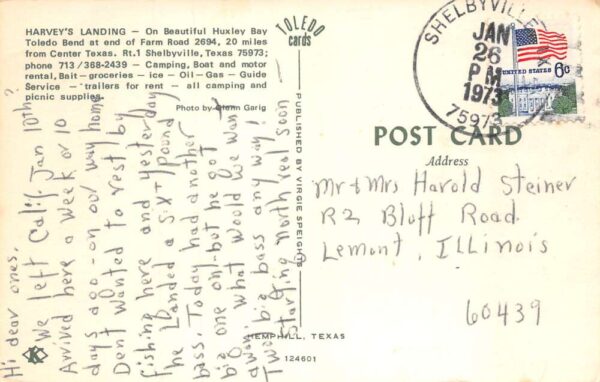 HARVEY'S LANDING — On Beautiful Huxley Bay
Toledo Bend at end of Farm Road 2694, 20 miles
from Center Texas. Rt.1 Shelbyville, Texas 75973;
phone 713/368-2439 - Camping, Boat and motor
rental, Bait - groceries - ice - Oil - Gas - Guide
Service - trailers for rent - all camping and
picnic supplies.
Photo by Glenn Gerig
TOLEDO
cards
Hi dear ones,
We left Calif. Jan 10th?
Arrived here a week or 10
days ago - on our way home
Dent wanted to rest by
fishing here and yesterday
he Landed a six + pound
bass. Today had another
big one on - but he got
away. What would we want
Two big bass any way!
Starting north real soon -
PUBLISHED BY VIRGIE SPEIGHTS
HEMPHILL, TEXAS
K
124601
SHELBYVILLE, TX
JAN
26
PM
1973
75973
UNITED STATES 6c
POST CARD
Address
Mr + Mrs Harold Steiner
R2 Bluff Road
Lemont, Illinois
60439